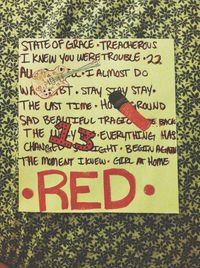 STATE OF GRACE • TREACHEROUS
I KNEW YOU WERE TROUBLE • 22
I ALMOST DO
STAY STAY STAY •
THE LAST TIME • GROUND
SAD BEAUTIFUL TRAGIC BACK
THE • EVERYTHING HAS
CHANGED • BEGIN AGAIN
THE MOMENT I KNEW • GIRL AT HOME
• RED •
13